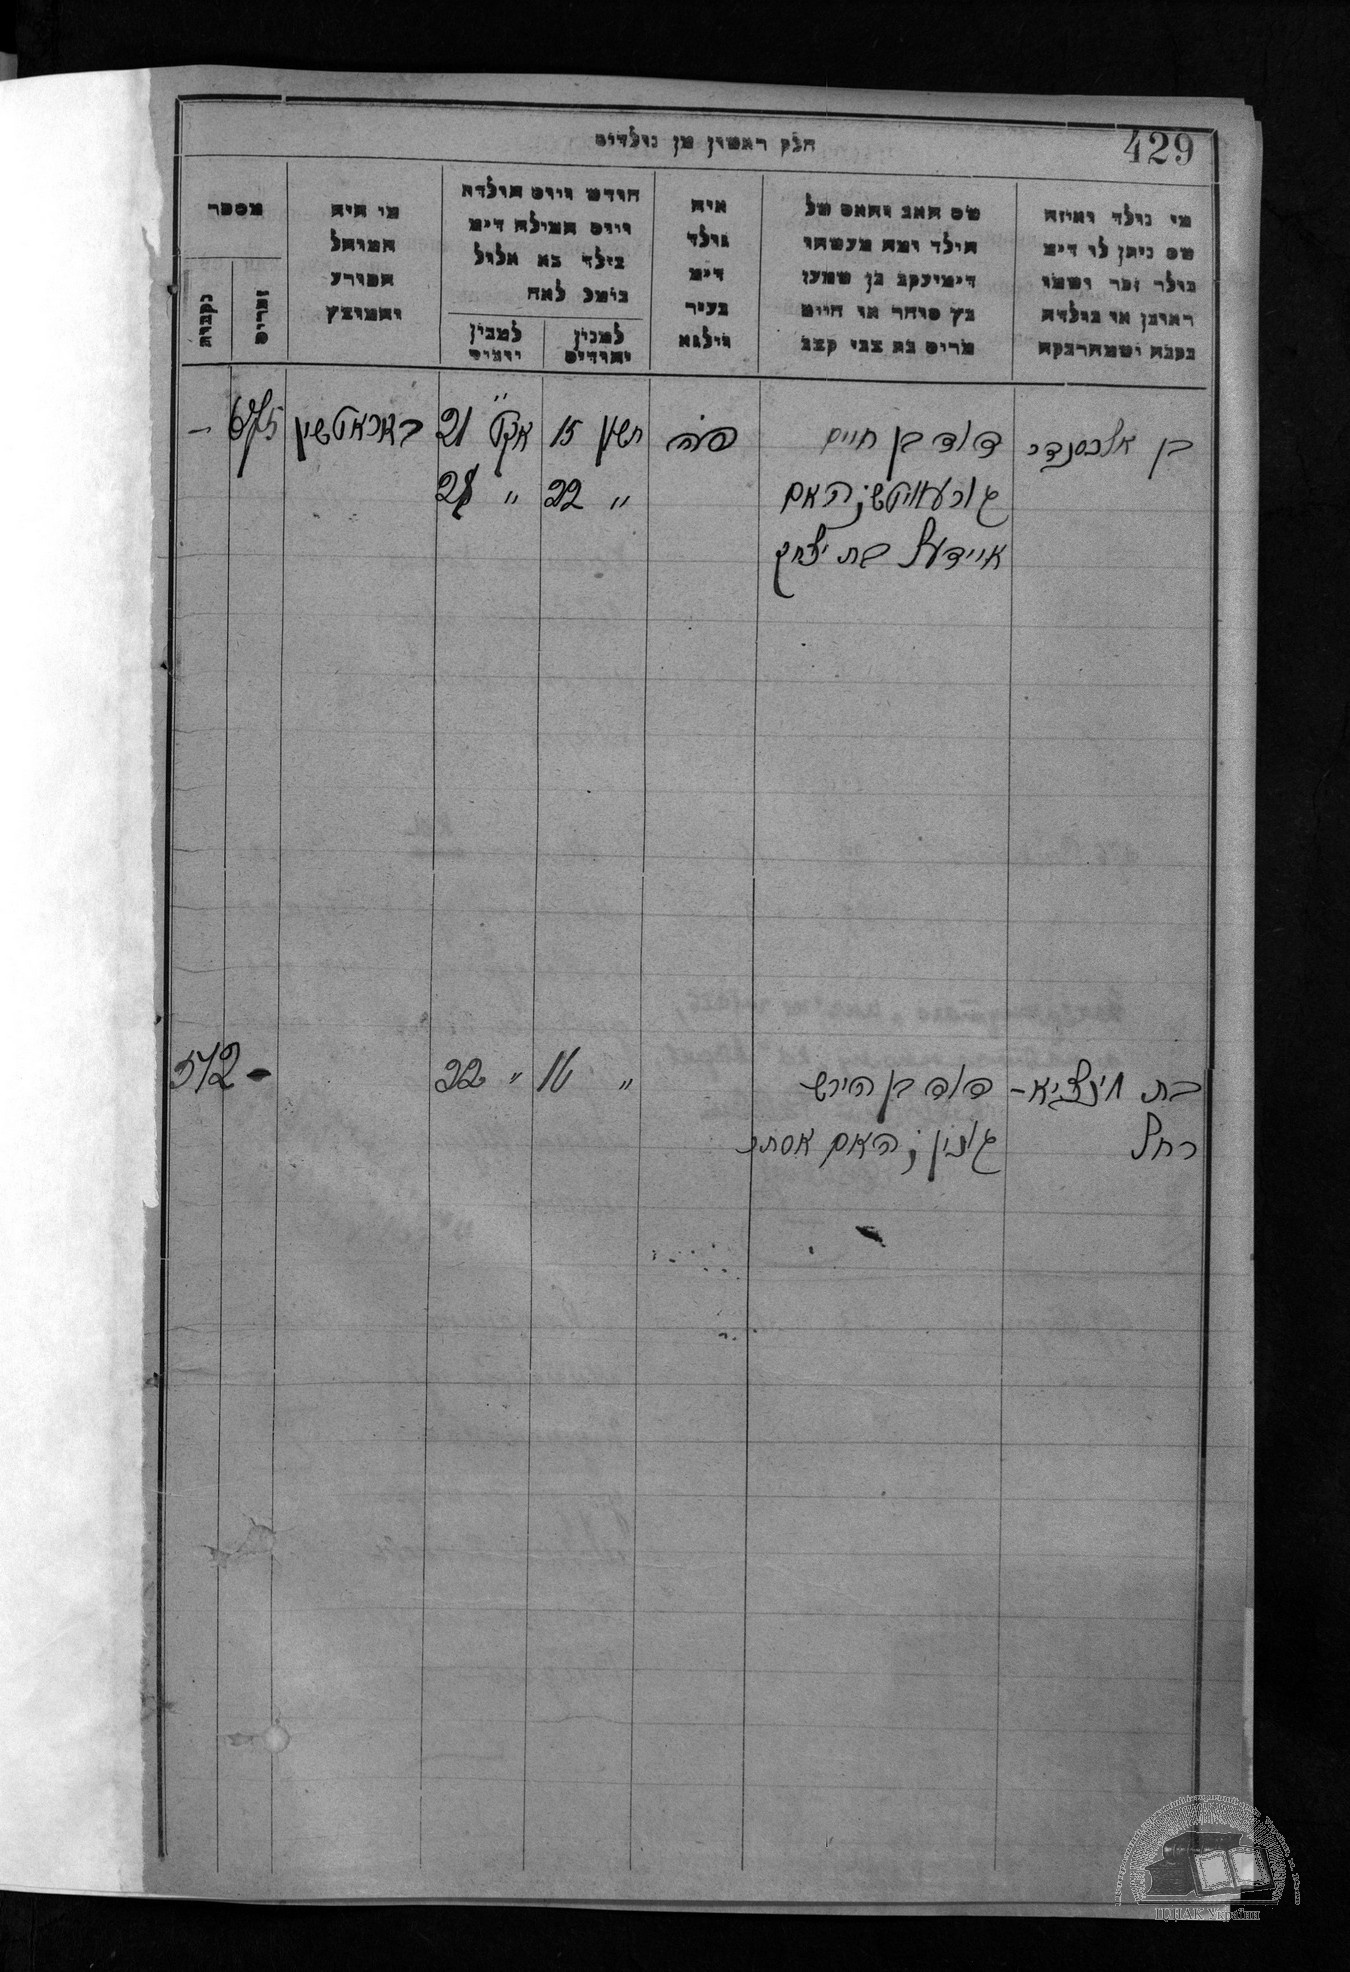 429
חלק ראשון מן נולדים
מי נולד ואיזה
שם ניתן לו דימ
נולד זכר ושמו
ראובן או נולדה
נקבה ושמה רבקה
שם האב והאם של
הילד ומה מעשהו
דימ יעקב בן שמעון
כץ סוחר או חייט
מרים בת צבי קצב
איה
נולד
דימ
בעיר
ווילנא
חודש ויום הולדה
ויום המילה דימ
בילד כא אלול
נומל לאח
למנין
יהודים
למנין
יונים
מי היה
המוהל
הפורע
והמוצץ
מספר
זכרים
נקבות
בן אלכסנדר
דוד בן חיים
גורעוויטש; האם
איידעל בת יצחק
פה
חשון 15
" 22
אקט 21
" 28
באראטשין
675
—
בת חינציא-
רחל
דוד בן הירש
גונין; האם אסתר
" 16
" 22
—
572
ЦДІАК України